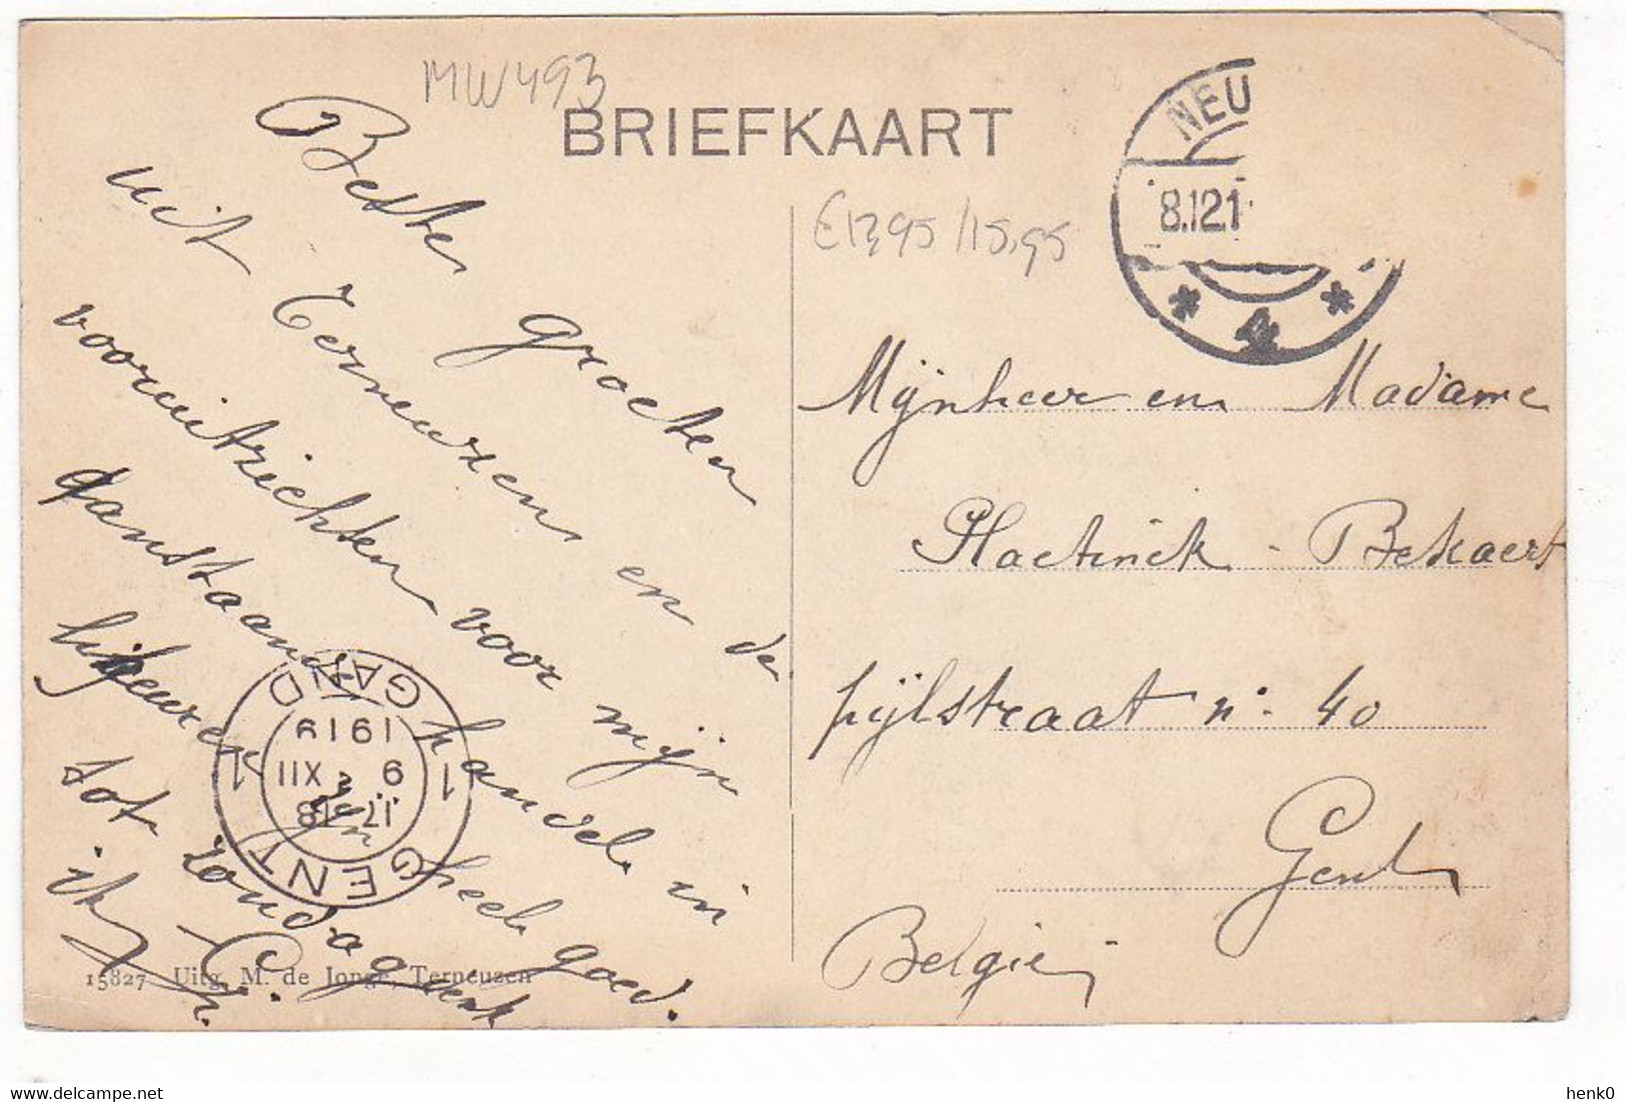 MW493
BRIEFKAART
Beste groeten
uit Terneuzen en de
vooruitzichten voor mijn
aanstaande handel in
zijn heel goed.
tot zondag
ik
15827 Uitg. M. de Jonge, Terneuzen
GENT GAND
1 1
17-18
9 XII
1919
NEU
8.12.1
4
€13,95/15,95
Mijnheer en Madame
Bekaert
pijlstraat n: 40
Gent
België
henk0